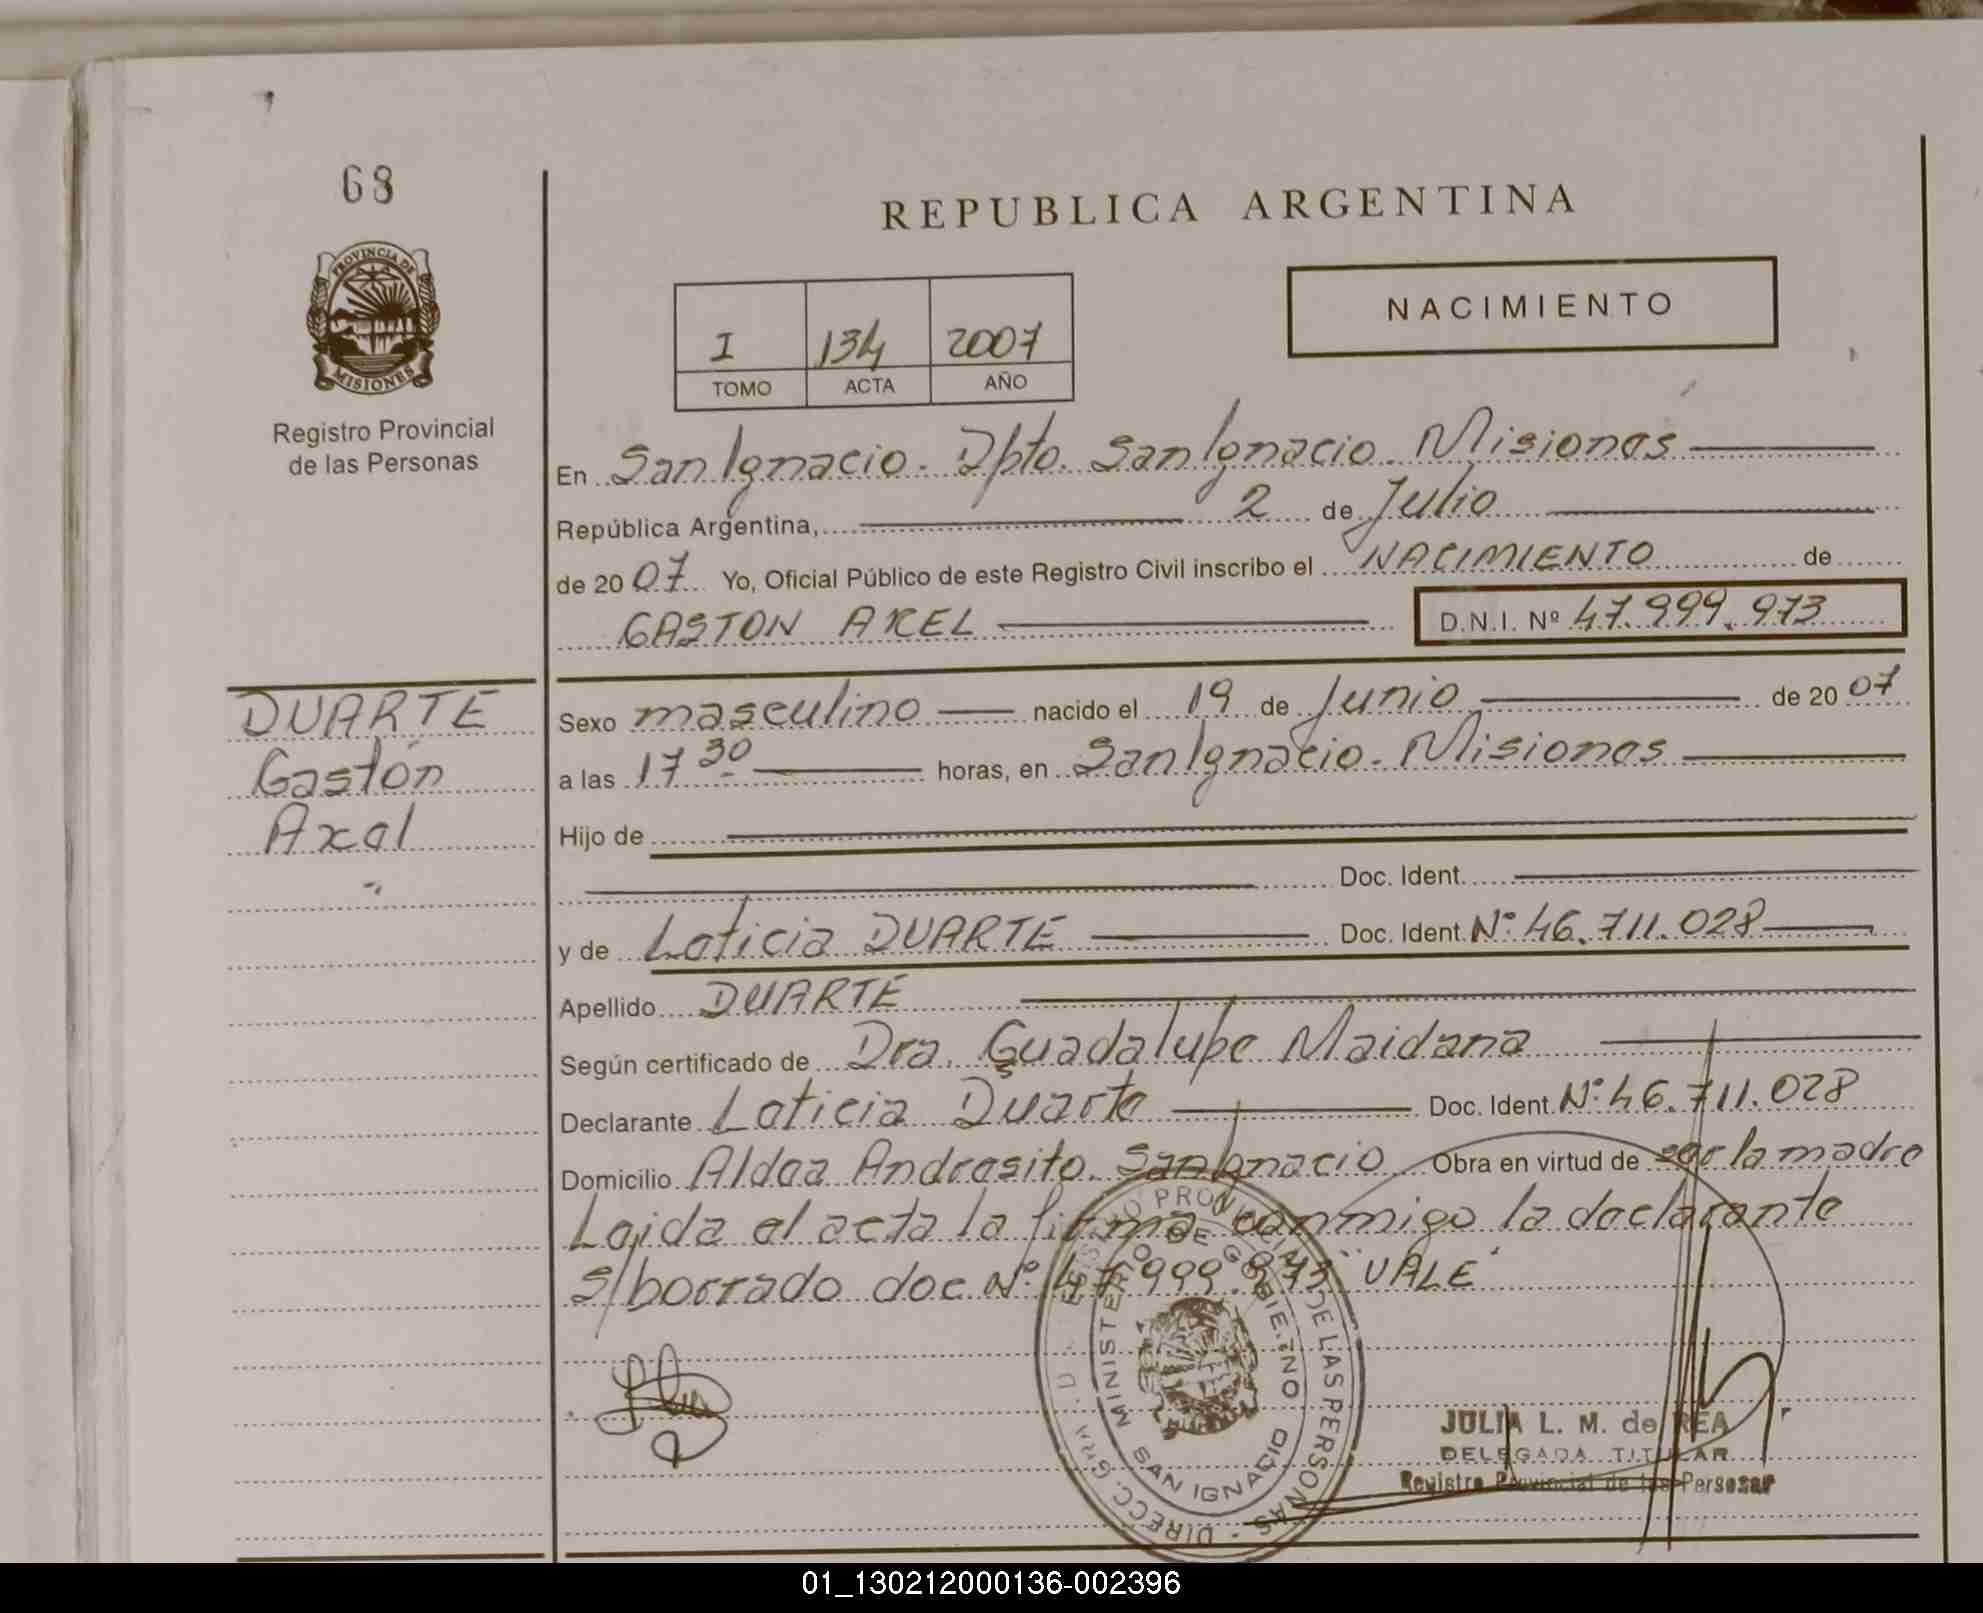 68
PROVINCIA DE
MISIONES
Registro Provincial
de las Personas
REPUBLICA ARGENTINA
NACIMIENTO
I 134 2007
TOMO ACTA AÑO
En San Ignacio. Dpto. San Ignacio. Misiones
República Argentina, 2 de Julio
de 2007 Yo, Oficial Público de este Registro Civil inscribo el NACIMIENTO de
GASTON AXEL D.N.I. Nº 47.999.973
DUARTE
Gastón
Axel
Sexo masculino nacido el 19 de Junio de 2007
a las 17 30 horas, en San Ignacio. Misiones
Hijo de
Doc. Ident.
y de Leticia DUARTE Doc. Ident. Nº 46.711.028
Apellido DUARTE
Según certificado de Dra. Guadalupe Maidana
Declarante Leticia Duarte Doc. Ident. Nº 46.711.028
Domicilio Aldea Andresito. San Ignacio Obra en virtud de ser la madre
Leida el acta la firma conmigo la declarante
S/borrado doc. Nº 47.999.973 "VALE"
REGISTRO PROVINCIAL DE LAS PERSONAS
MINISTERIO DE GOBIERNO
SAN IGNACIO
JULIA L. M. de REA
DELEGADA TITULAR
Registro Provincial de las Personas
01_130212000136-002396